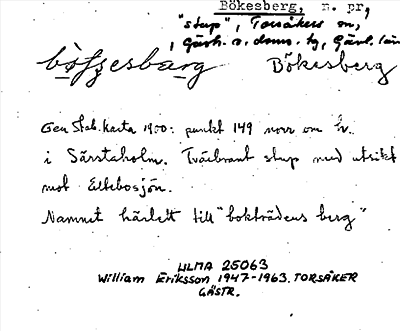 Bökesberg, n. pr,
"stup", Torsåkers sn,
, Gästr. ö. doms. hg, Gävl. län
Bökesberg
Gen Stab. karta 1900: punkt 149 norr om Kv.
i Särstaholm. Tvärbrant stup med utsikt
mot Eltebosjön.
Namnet härlett till "bokträdens berg"
ULMA 25063
William Eriksson 1947-1963. TORSÅKER
GÄSTR.